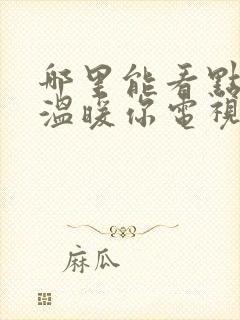 哪里能看點
溫暖你電視
麻瓜